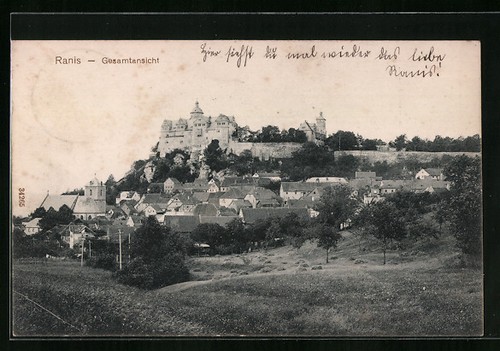 Ranis – Gesamtansicht
Hier siehst du mal wieder das liebe
Ranis!
34265